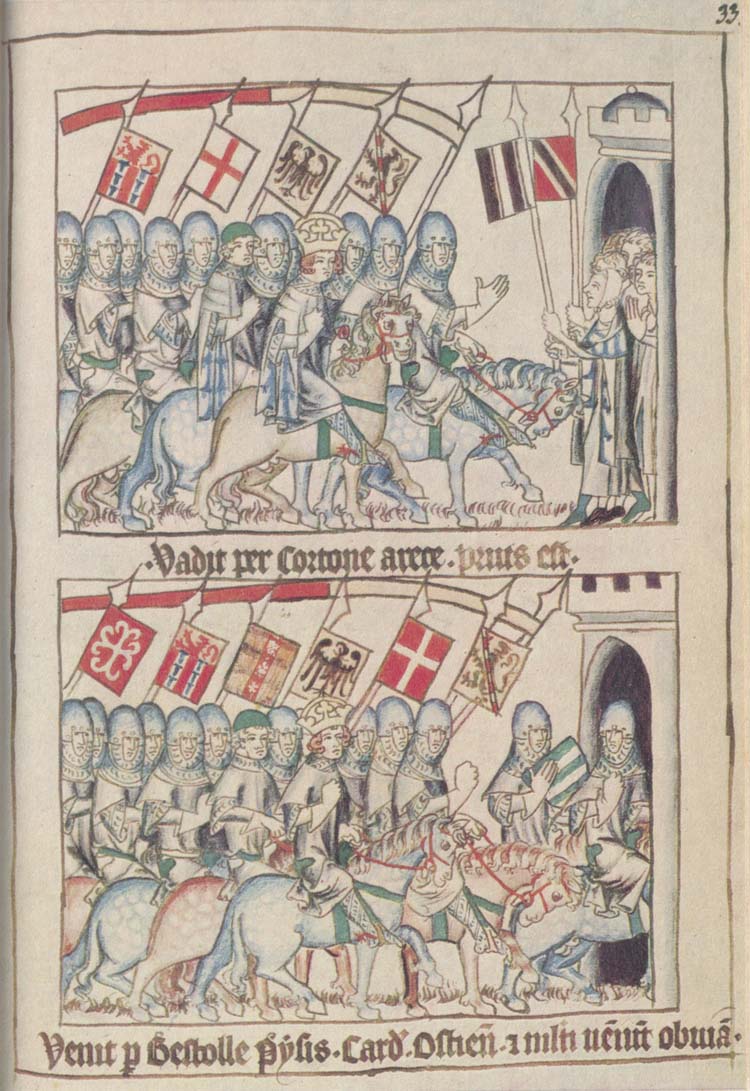 33.
·Vadit per Cortone arece· prius est·
Venit p̱ Bestolle Pẏsis· Card̕· Ostien̄· ⁊ mlti uēiūt obuiā·